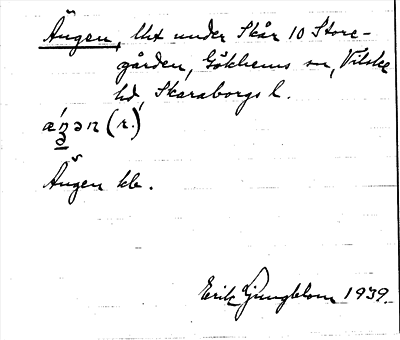 Ängen, lht under Skår 10 Store-
gården, Gökhems sn, Vilske
hd, Skaraborgs l.
(r.)
Ängen kb.
Erik Ljungblom 1939.